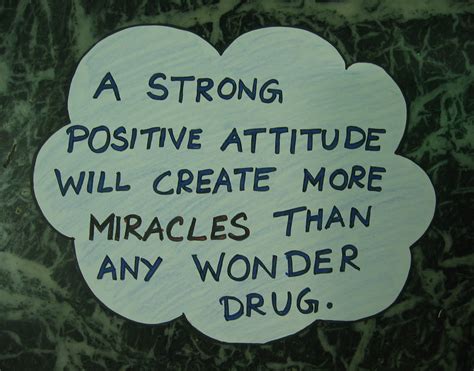 A STRONG
POSITIVE ATTITUDE
WILL CREATE MORE
MIRACLES THAN
ANY WONDER
DRUG.